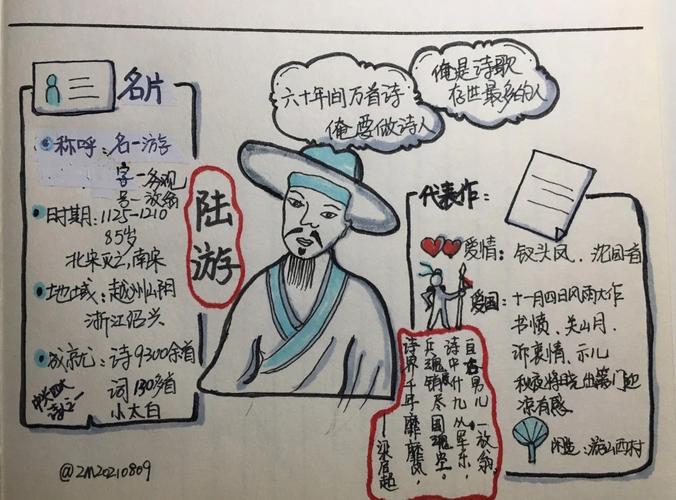 名片
称呼：名一游
字一务观
号一放翁
时期：1125-1210
85岁
北宋灭亡，南宋
地域：越州山阴
浙江绍兴
成就：诗9300余首
词130多首
小太白
中兴四大
@ZM20210809
陆游
六十年间万首诗
俺要做诗人
俺是诗歌
存世最多的人
代表作：
爱情：钗头凤、沈园首
爱国：十一月四日风雨大作
书愤、关山月、
诉衷情、示儿
秋夜将晓出篱门迎
凉有感
闲适：游山西村
诗界千年靡靡风，
兵魂销尽国魂空。
诗中什九从军乐，
亘古男儿一放翁
——梁启超